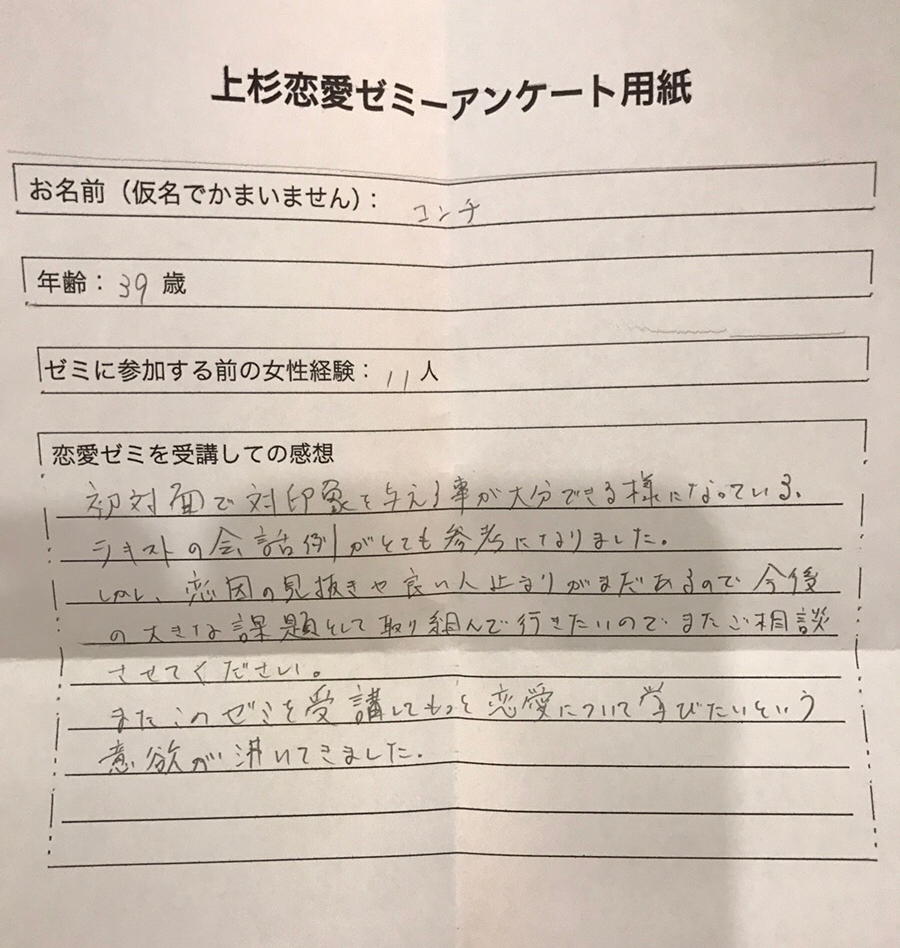 上杉恋愛ゼミーアンケート用紙
お名前（仮名でかまいません）： コンチ
年齢： 39 歳
ゼミに参加する前の女性経験： 11 人
恋愛ゼミを受講しての感想
初対面で対印象を与える事が大分できる様になっている。
テキストの会話例がとても参考になりました。
しかし、恋因の見抜きや良い人止まりがまだあるので今後
の大きな課題として取り組んで行きたいのでまたご相談
させてください。
またこのゼミを受講してもっと恋愛について学びたいという
意欲が沸いてきました。